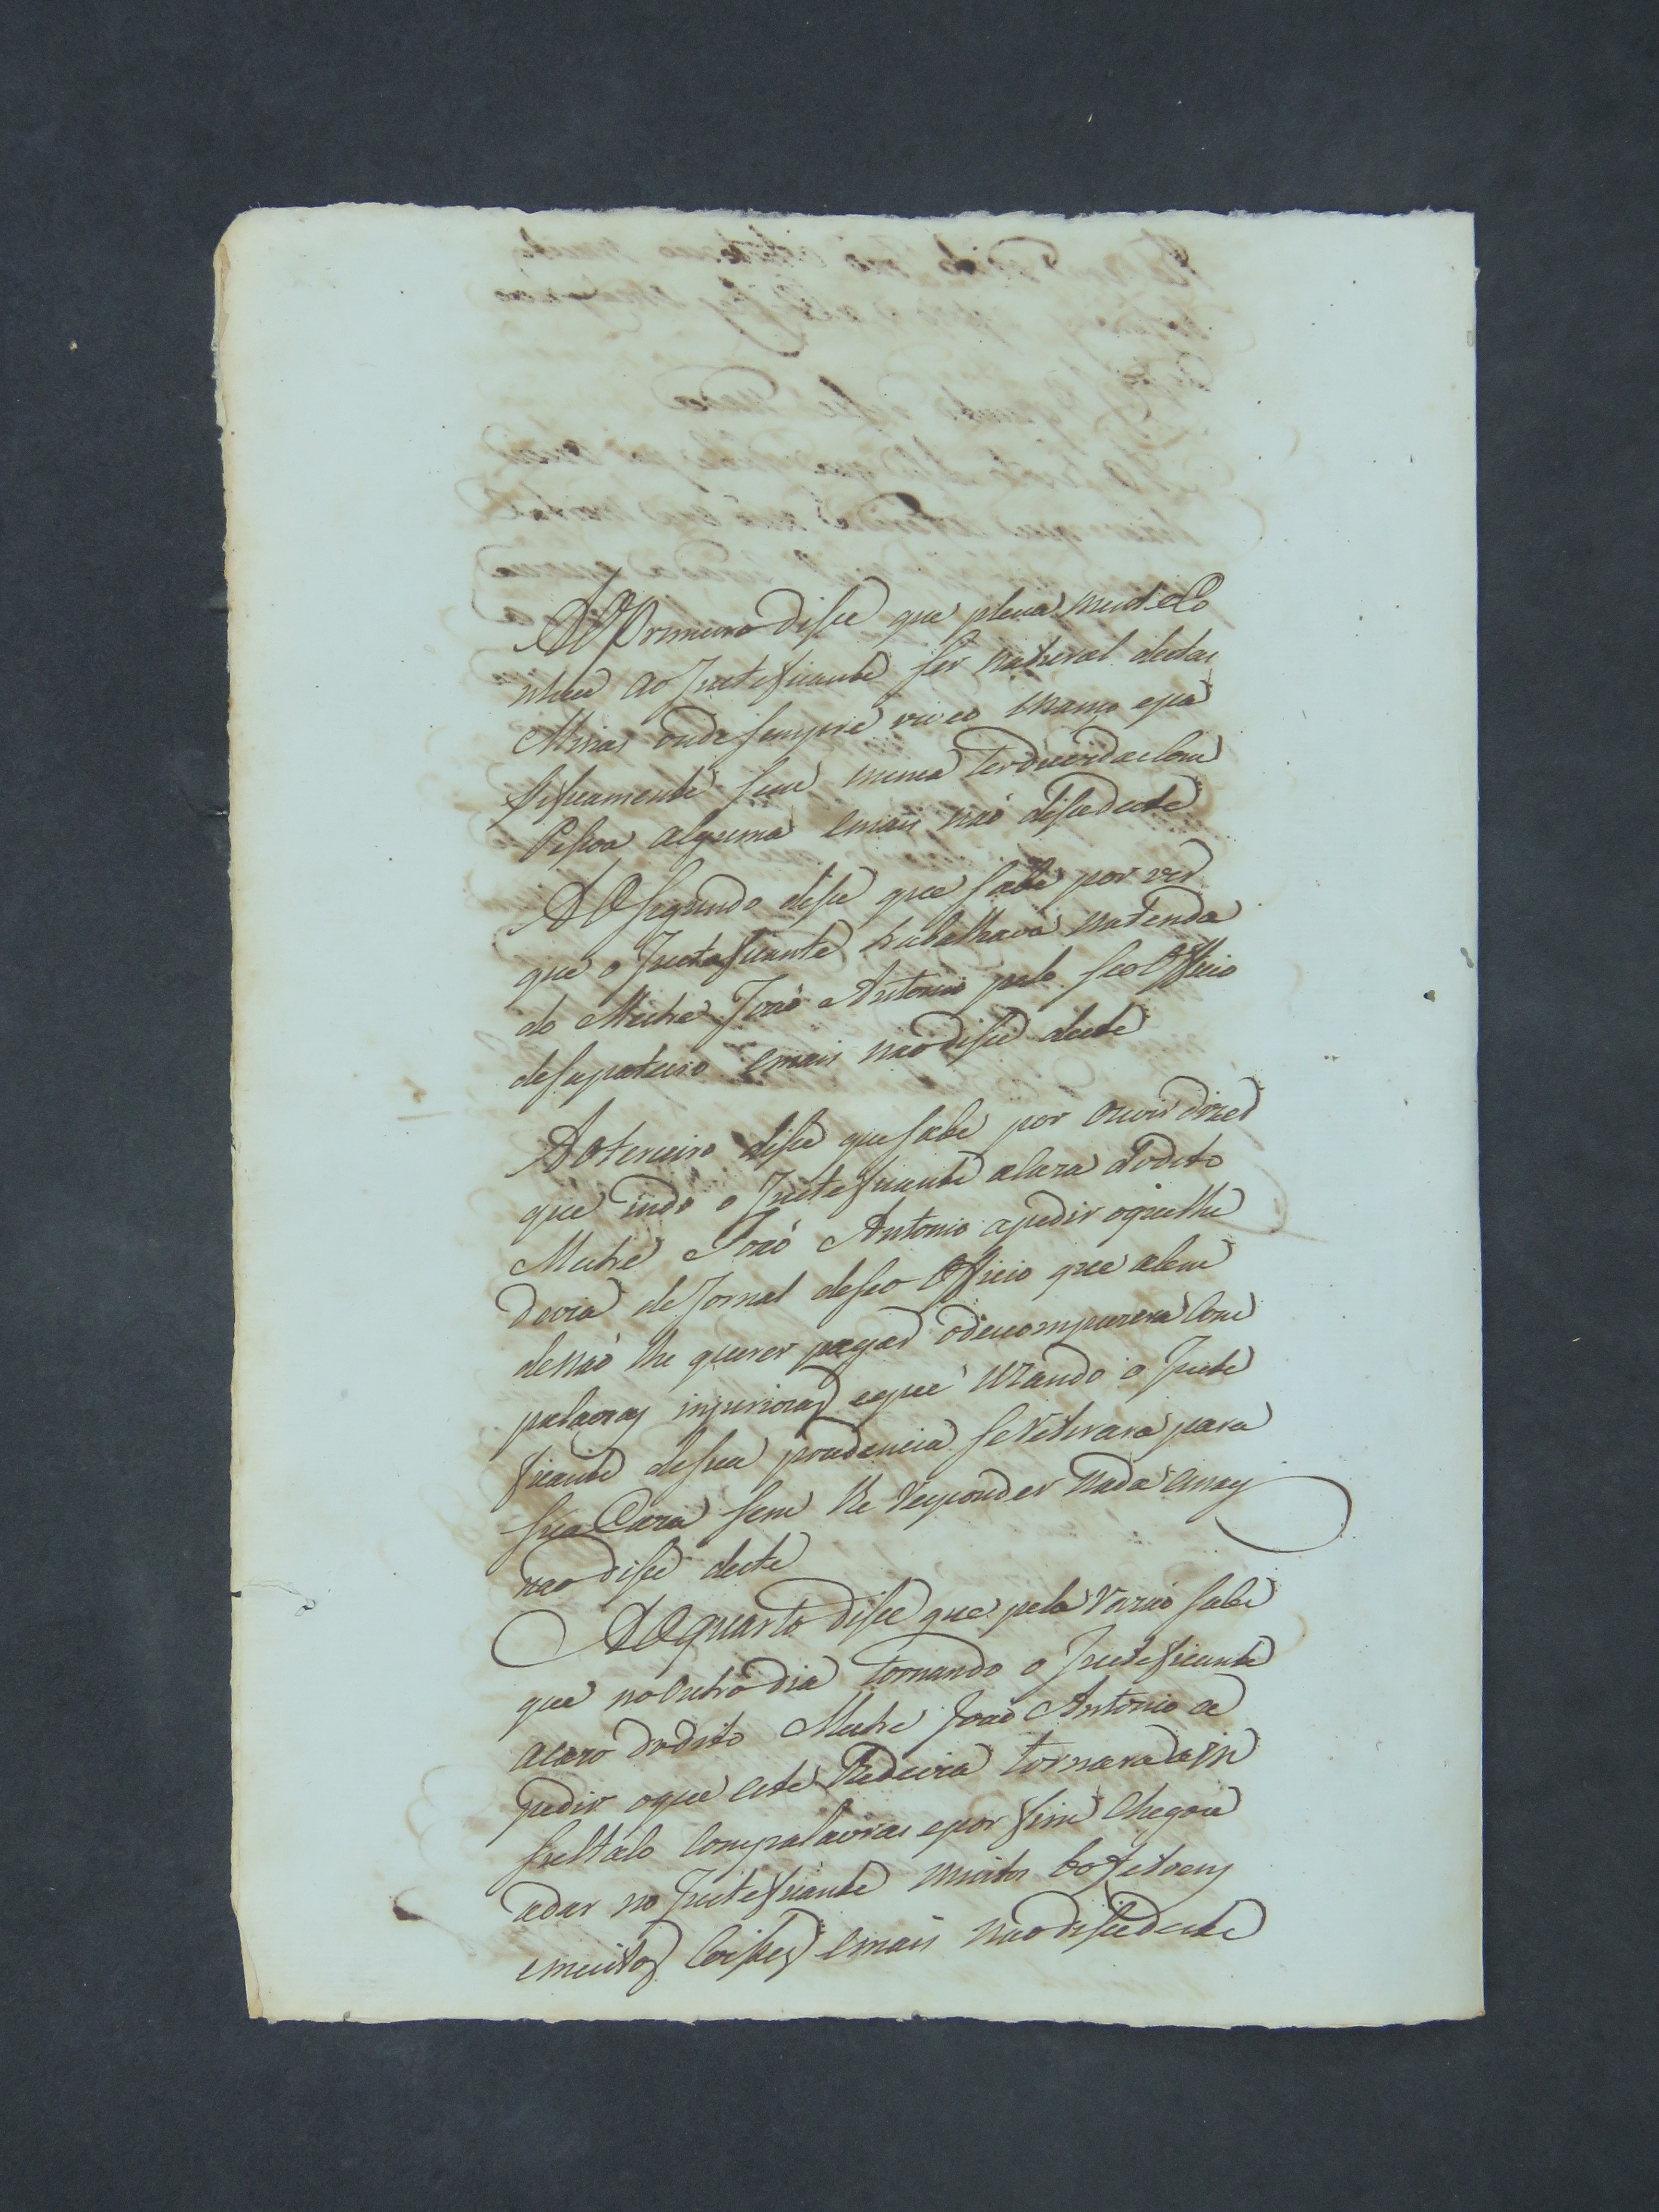 Ao Primeiro disse que plena mente Co
nhece ao Justeficante ser natural destas
Minas onde sempre viveo manço e pa
sificamente sem nunca ter duvida com
Pessoa alguma e mais não disse deste
Ao segundo disse que sabe por ver
que o Justeficante trabalhava na tenda
do Mestre João Antonio pelo seo Officio
de sapateiro e mais não disse deste
Ao terceiro disse que sabe por ouvir dizer
que indo o Justeficante a Caza do dito
Mestre João Antonio a pedir o que lhe
devia de Jornal de seo Officio que alem
de não lhe querer pagar o descompuzera com
palavras injuriozas e que uzando o Juste
ficante de sua prudencia se retirara para
sua Caza sem lhe responder nada e mais
não disse deste
Ao quarto disse que pela razão sabe
que no outro dia tornando o Justeficante
a caza do dito Mestre João Antonio a
pedir o que este lhe devia tornara a in
sultalo com palavras e por fim chegou
a dar no Justeficante muitos bofetoens
e muitos e mais não disse deste